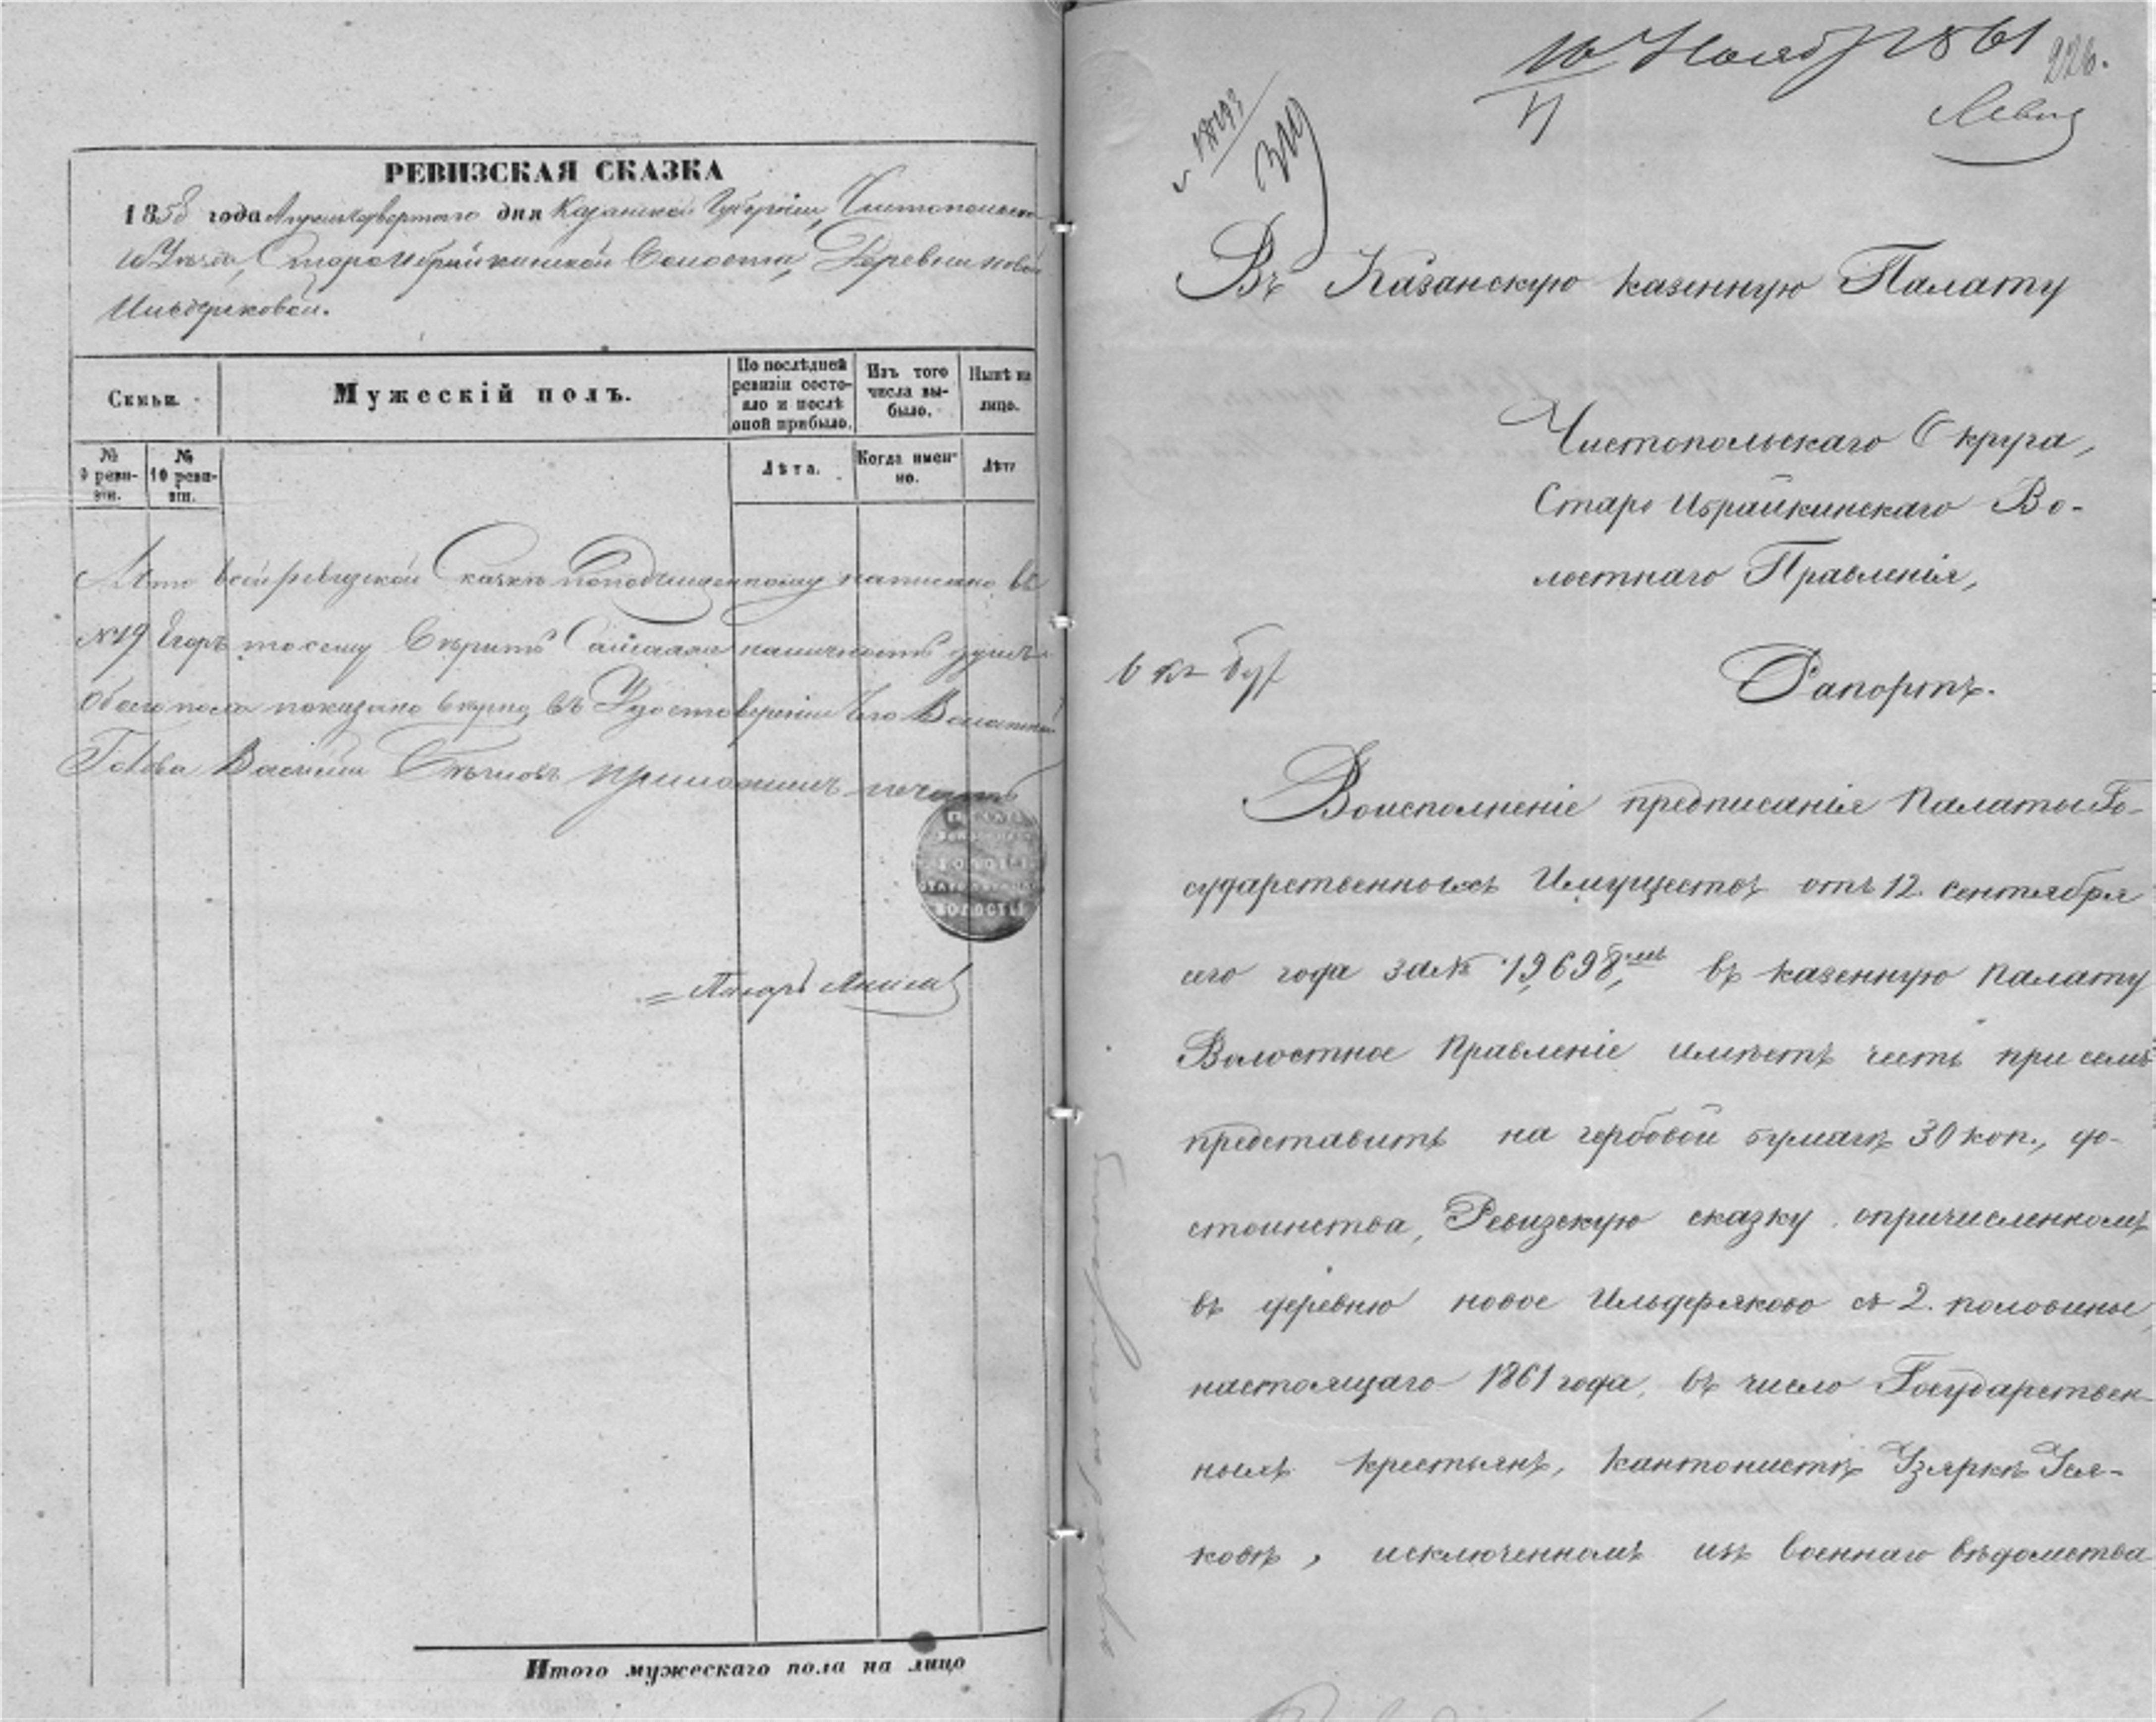 РЕВИЗСКАЯ СКАЗКА
1858 года Апреля четвертаго дня Казанской Губернiи, Чистопольска-
го Уѣзда, Староибрайкинской Волости, Деревни новой
Ильдеряковой.
Семьи.
Мужескiй полъ.
По послѣдней ревизiи состояло и послѣ оной прибыло.
Изъ того числа выбыло.
Нынѣ на лицо.
№ 9 ревизiи.
№ 10 ревизiи.
Лѣта.
Когда именно.
Лѣта
Что въ сей ревизской Сказкѣ по подчищенному написано въ
№ 19 Егоръ тому вѣрить наличность душъ
обоего пола показана вѣрно, въ Удостоверенiи чего Волостной
Голова Василiй приложилъ печать
Писарь
Итого мужескаго пола на лицо
10 Нояб 1861
226.
Въ Казанскую казенную Палату
Чистопольскаго Округа,
Старо Ибрайкинскаго Во-
лостнаго Правленiя,
Рапортъ.
Во исполненiе предписанiя Палаты Го-
сударственныхъ Имуществъ отъ 12. сентября
сего года за № 19,698, въ казенную палату
Волостное Правленiе имѣетъ честь при семъ
представить на гербовой бумагѣ 30 коп., до-
стоинства, Ревизскую сказку о причисленномъ
въ деревню новое Ильдеряково съ 2. половины,
настоящаго 1861 года, въ число Государствен-
ныхъ крестьянъ, кантонистѣ Узяркѣ Уся-
ковѣ, исключенномъ изъ военнаго вѣдомства